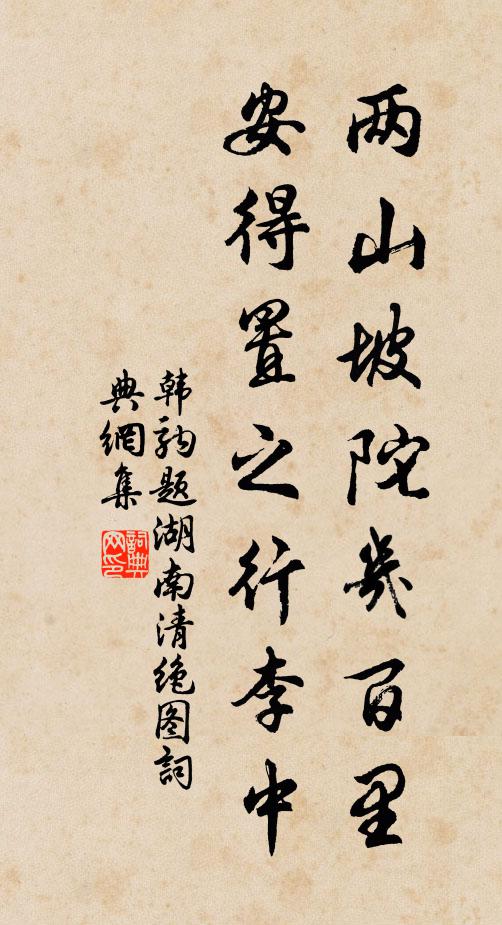 两山坡陀几百里
安得置之行李中
韩驹题湖南清绝图词
典網集
詞典网印